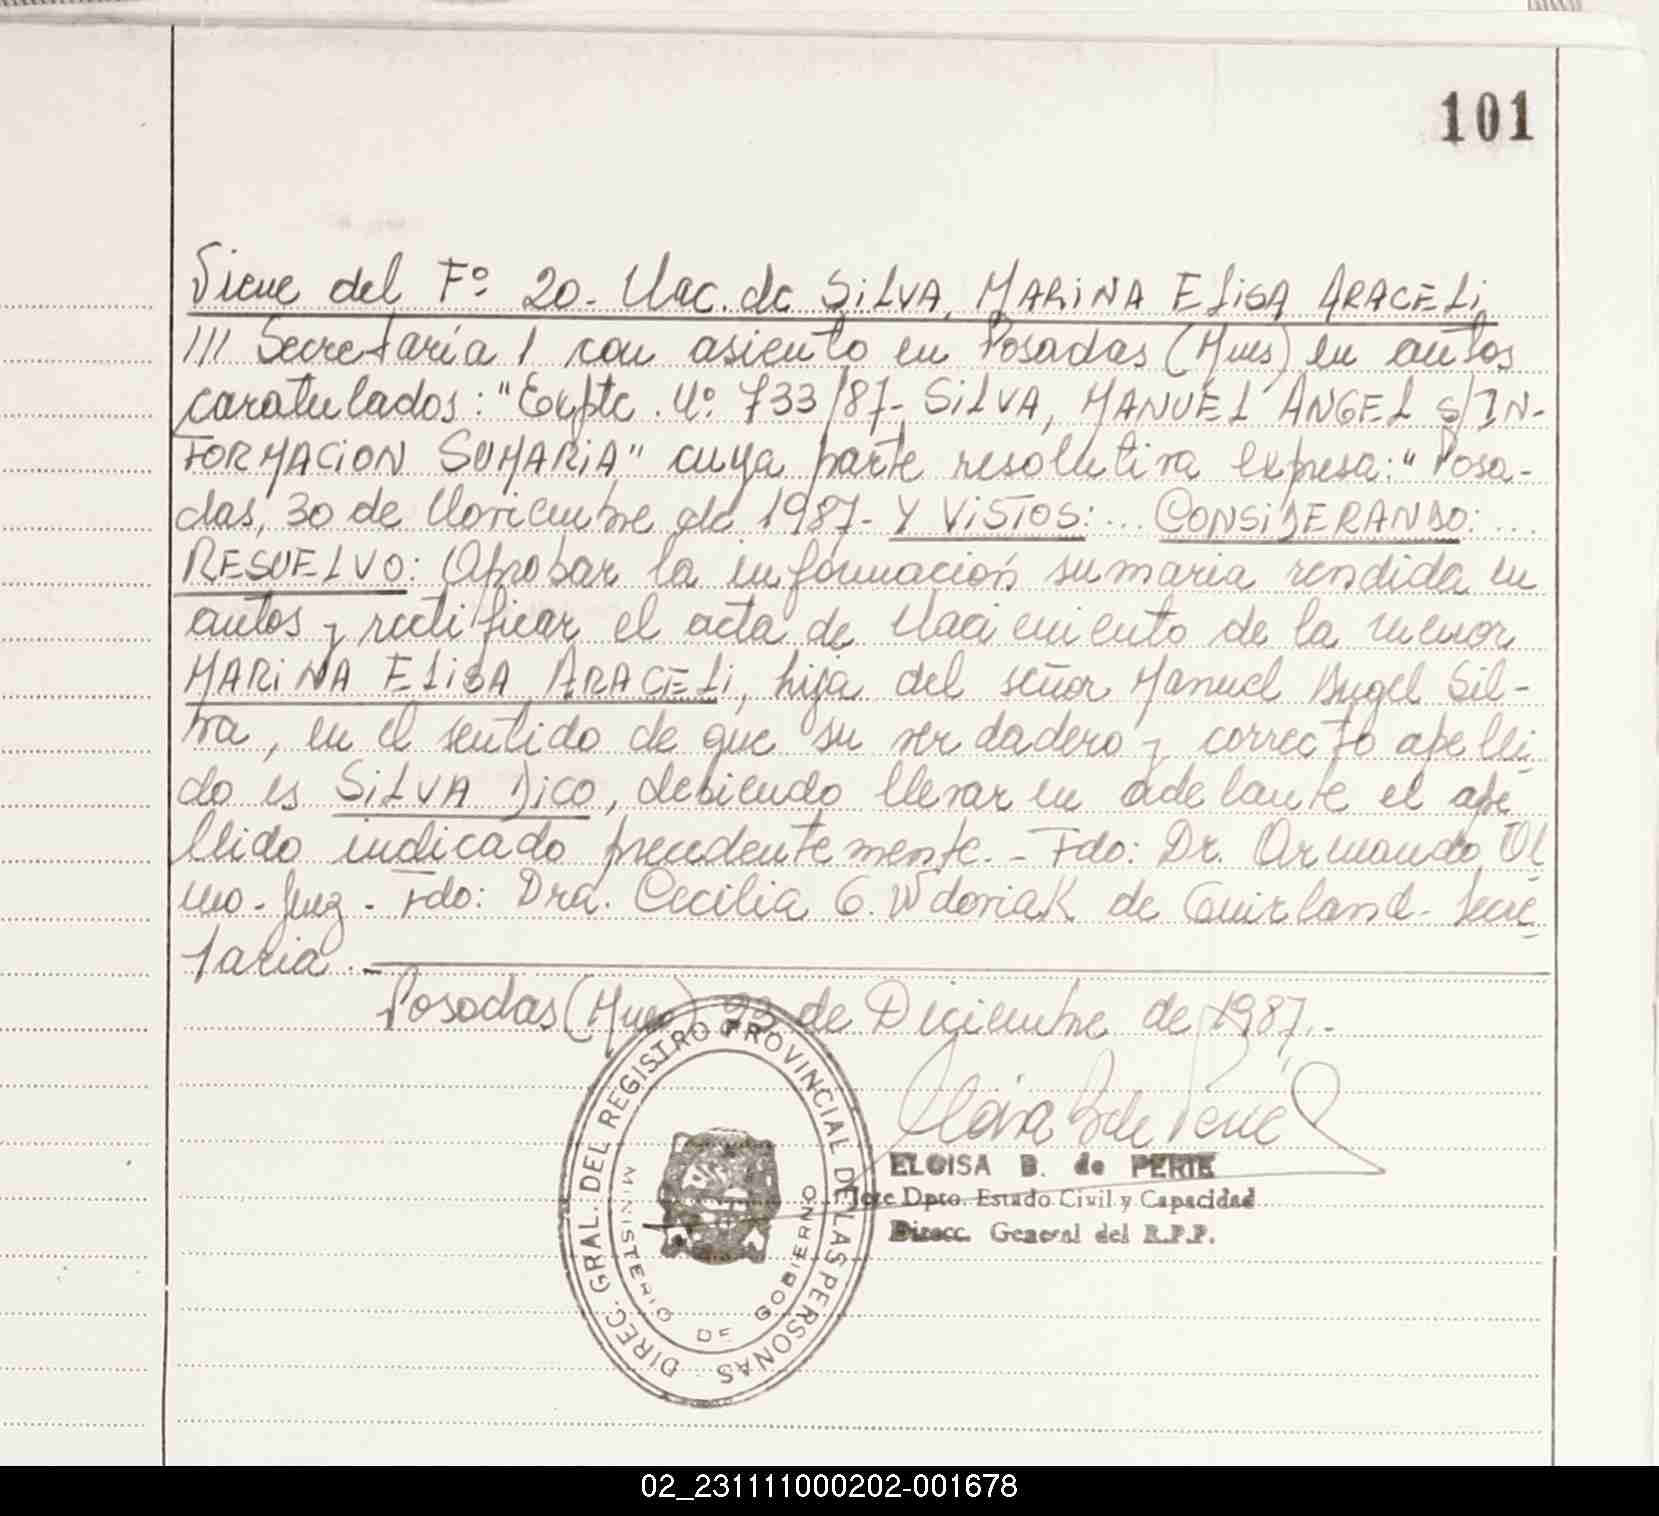 101
Viene del Fº 20. Nac. de SILVA, MARINA ELISA ARACELI
/// Secretaría 1 con asiento en Posadas (Mnes) en autos
caratulados: "Expte. Nº 733/87- SILVA, MANUEL ANGEL S/IN-
FORMACION SUMARIA" cuya parte resolutiva expresa: "Posa-
das, 30 de Noviembre de 1987- Y VISTOS:... CONSIDERANDO:...
RESUELVO: Aprobar la información sumaria rendida en
autos y rectificar el acta de Nacimiento de la menor
MARINA ELISA ARACELI, hija del señor Manuel Angel Sil-
va, en el sentido de que su verdadero y correcto apelli-
do es SILVA DICO, debiendo llevar en adelante el ape-
llido indicado precedentemente.- Fdo: Dr. Armando Ol-
mo-Juez- Fdo: Dra. Cecilia G. Wdoviak de Guirland- Secre-
taria.-
Posadas (Mnes) 23 de Diciembre de 1987.-
ELOISA B. de PERIE
Jefe Dpto. Estado Civil y Capacidad
Direcc. General del R.P.P.
DIREC. GRAL. DEL REGISTRO PROVINCIAL DE LAS PERSONAS
MINISTERIO DE GOBIERNO
02_231111000202-001678